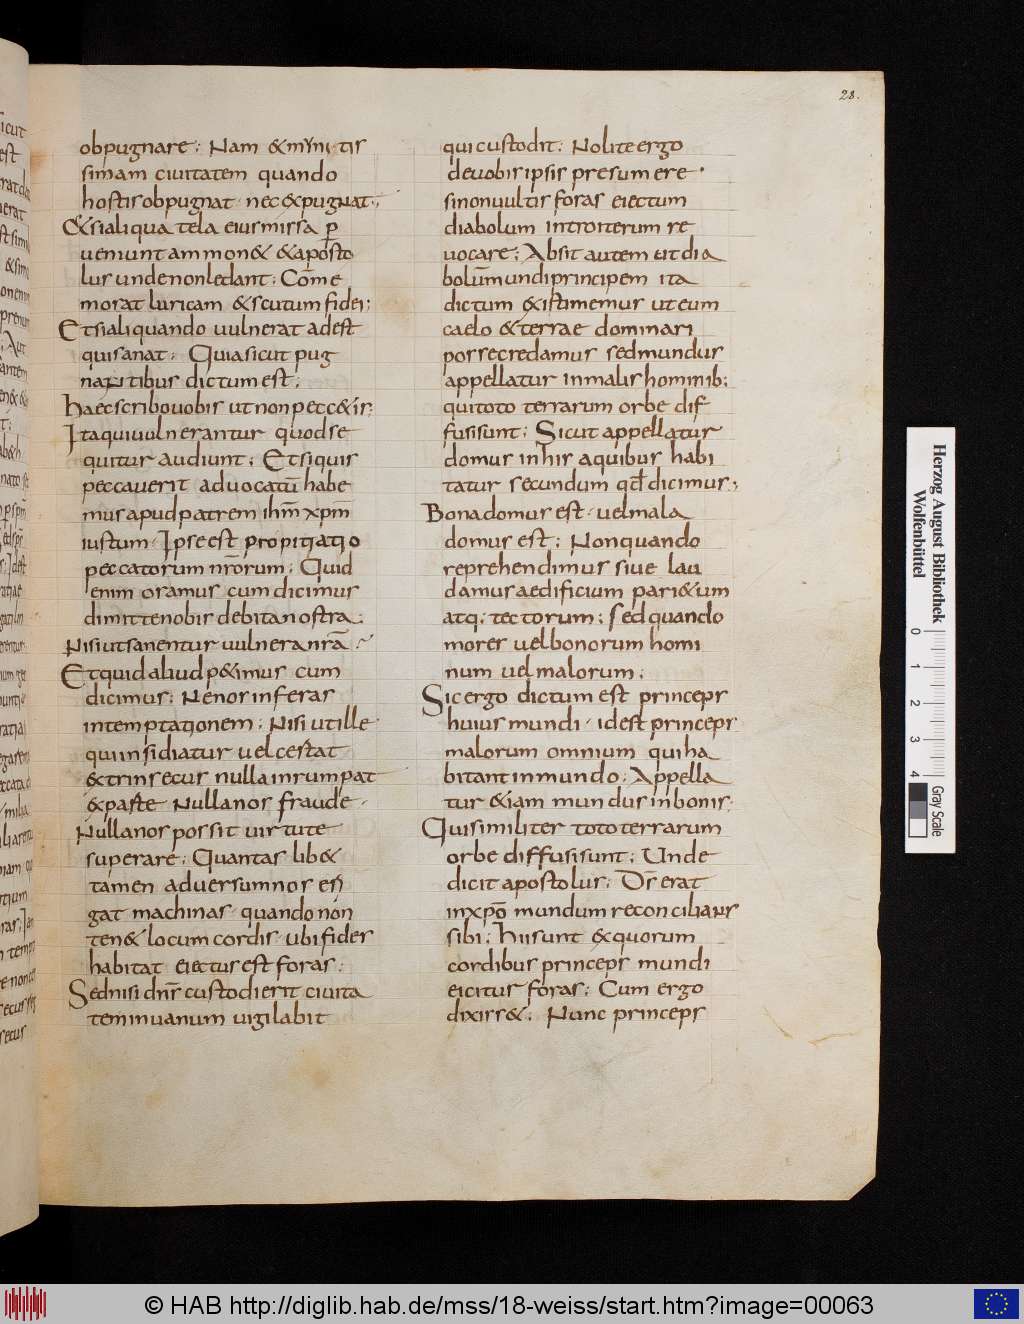 28.
obpugnare; Nam & munitis
simam ciuitatem quando
hostis obpugnat. nec expugnat;
& si aliqua tela eius missa p̱
ueniunt ammon& & aposto
lus unde non ledant; Com̄e
morat luricam & scutum fidei;
Et si aliquando uulnerat adest
qui sanat; Quia sicut pug
nantibus dictum est;
Haec scribo uobis ut non pecc&is;
Ita qui uulnerantur quod se
quitur audiunt; Et si quis
peccauerit aduocatū habe
mus apud patrem ihm̄ xpm̄
iustum. Ipse est propitiatio
peccatorum nr̄orum; Quid
enim oramus cum dicimus
dimitte nobis debita nostra.
Nisi ut sanentur uulnera nrā;
Et quid aliud p&imus cum
dicimus; Ne nos inferas
in temptationem; Nisi ut ille
qui insidiatur uel certat
extrinsecus nulla inrumpat
ex parte Nulla nos fraude.
Nulla nos possit uirtute
superare; Quantas lib&
tamen aduersum nos eri
gat machinas. quando non
ten& locum cordis. ubi fides
habitat eiectus est foras;
Sed nisi dn̄s custodierit ciuita
tem in uanum uigilabit
qui custodit; Nolite ergo
de uobis ipsis presumere.
si non uultis foras eiectum
diabolum introiterum re
uocare; Absit autem ut dia
bolū mundi principem ita
dictum existimemus ut eum
caelo & terrae dominari
posse credamus sed mundus
appellatur in malis hominib;
qui toto terrarum orbe dif
fusi sunt; Sicut appellatur
domus in his a quibus habi
tatur secundum qd̄ dicimus;
Bona domus est. uel mala
domus est; Non quando
reprehendimus siue lau
damus aedificium pari&um
atq; tectorum; sed quando
mores uel bonorum homi
num uel malorum;
Sic ergo dictum est princeps
huius mundi. id est princeps
malorum omnium qui ha
bitant in mundo; Appella
tur &iam mundus in bonis.
Qui similiter toto terrarum
orbe diffusi sunt; Unde
dicit apostolus; Ds̄ erat
in xpō mundum reconcilians
sibi; Hii sunt ex quorum
cordibus princeps mundi
eicitur foras; Cum ergo
dixiss&; Nunc princeps
Herzog August Bibliothek
Wolfenbüttel
0 1 2 3 4
Gray Scale
© HAB http://diglib.hab.de/mss/18-weiss/start.htm?image=00063